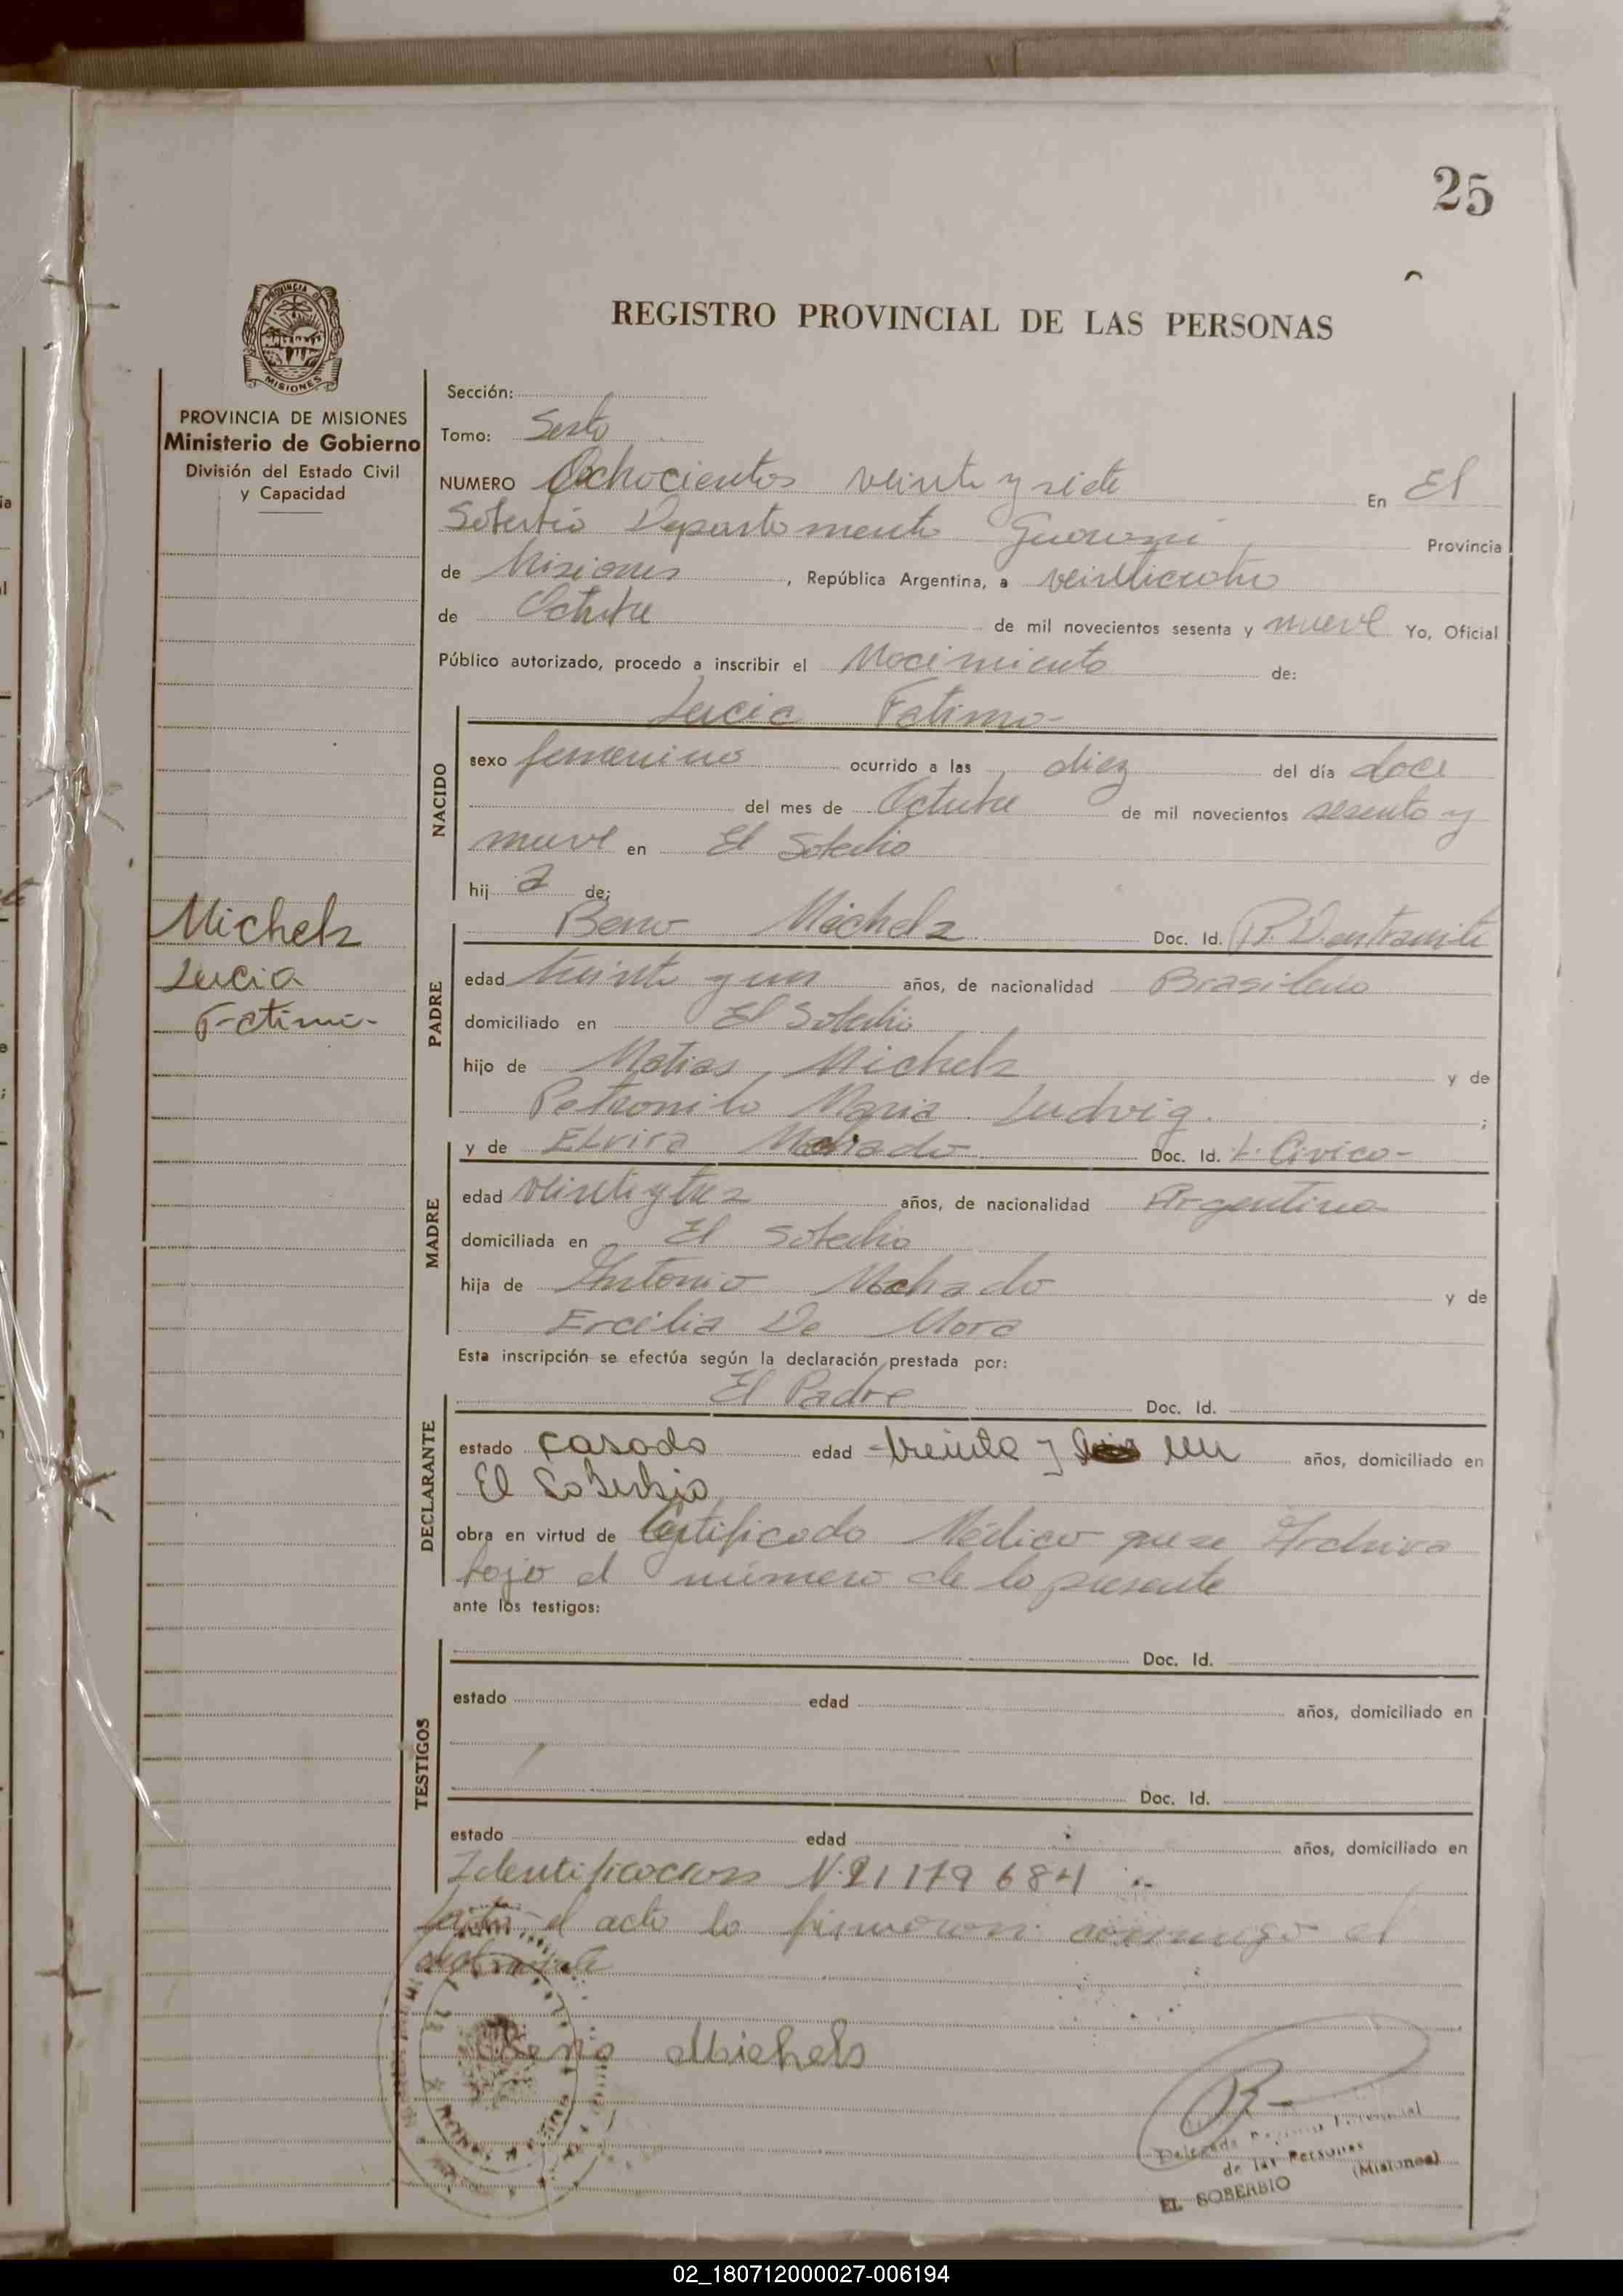 25
REGISTRO PROVINCIAL DE LAS PERSONAS
PROVINCIA DE MISIONES
PROVINCIA DE MISIONES
Ministerio de Gobierno
División del Estado Civil
y Capacidad
Michels
Lucia
Fatima
Sección:
Tomo: Sexto
NUMERO Ochocientos veinte y siete En El
Soberbio Departamento Guarani Provincia
de Misiones, República Argentina, a veinticuatro
de Octubre de mil novecientos sesenta y nueve Yo, Oficial
Público autorizado, procedo a inscribir el Nacimiento de:
NACIDO
Lucia Fatima-
sexo femenino ocurrido a las diez del día doce
del mes de Octubre de mil novecientos sesenta y
nueve en El Soberbio
hij a de:
PADRE
Beno Michels Doc. Id. R.D. en tramite
edad treinta y un años, de nacionalidad Brasileño
domiciliado en El Soberbio
hijo de Matias Michels y de
Petronila Maria Ludvig. ;
MADRE
y de Elvira Machado Doc. Id. L. Civico-
edad veintiytres años, de nacionalidad Argentina
domiciliada en El Soberbio
hija de Antonio Machado y de
Ercilia De Mora
Esta inscripción se efectúa según la declaración prestada por:
DECLARANTE
El Padre Doc. Id.
estado casado edad treinta y un años, domiciliado en
El Soberbio
obra en virtud de Certificado Médico que se Archiva
bajo el número de la presente
ante los testigos:
TESTIGOS
Doc. Id.
estado edad años, domiciliado en
Doc. Id.
estado edad años, domiciliado en
Identificacion N. 21 179 684
el acto lo firmaron conmigo el
declarante
Beno Michels
Delegado Registro Provincial
de las Personas
EL SOBERBIO (Misiones)
02_180712000027-006194